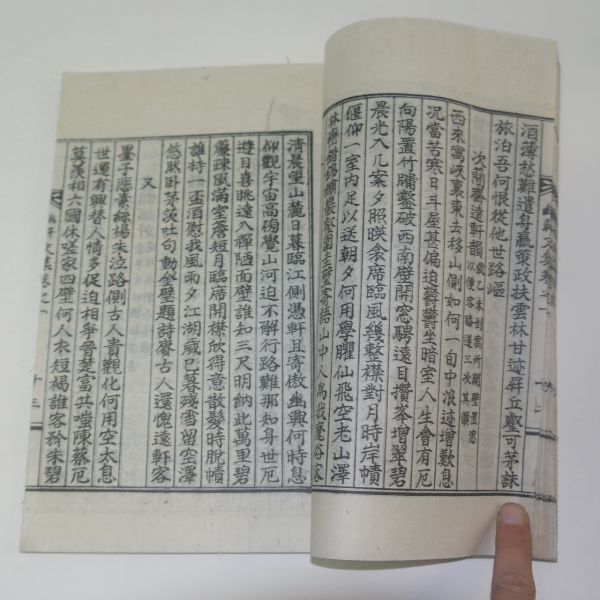 酒薄愁難遣身羸策政扶雲林甘迹屛丘壑可茅誅
旅泊吾何恨從他世路嶇
次蘭齋遠軒韻
西來寓峽裏東去移山側如何一自中浪迹增歎息
況當苦寒日斗屋甚偏迫鬱鬱坐暗室人生會有厄
向陽置竹牖鑿破西南壁開窓騁遠目攢峯增翠碧
晨光入几案夕照暎衾席臨風幾整襟對月時岸幘
偃仰一室內足以送朝夕何用學臞仙飛空老山澤
寄語山中人爲我
清晨望山麓日暮臨江側憑軒且寄傲幽興何時息
仰觀宇宙高傍覺山河迫不解行路難那知身世厄
遊目喜眺遠八彈陋面壁誰知三尺明納此萬里碧
蕭疎風滿室詹短月臨席開襟欣得意散髮時脫幘
誰持一盃酒慰我風雨夕江湖歲已暮殘雪留空澤
悠然臥茅茨吐句動全壁題詩賡古人還愧遠軒客
又
墨子悲素絲楊朱泣路側古人貴觀化何用空太息
世運有興替人情多促迫相爭晉楚富共嗤陳蔡厄
莫羨相六國休嗟家四壁何人衣短褐誰客矜朱碧
文集卷之一
十三